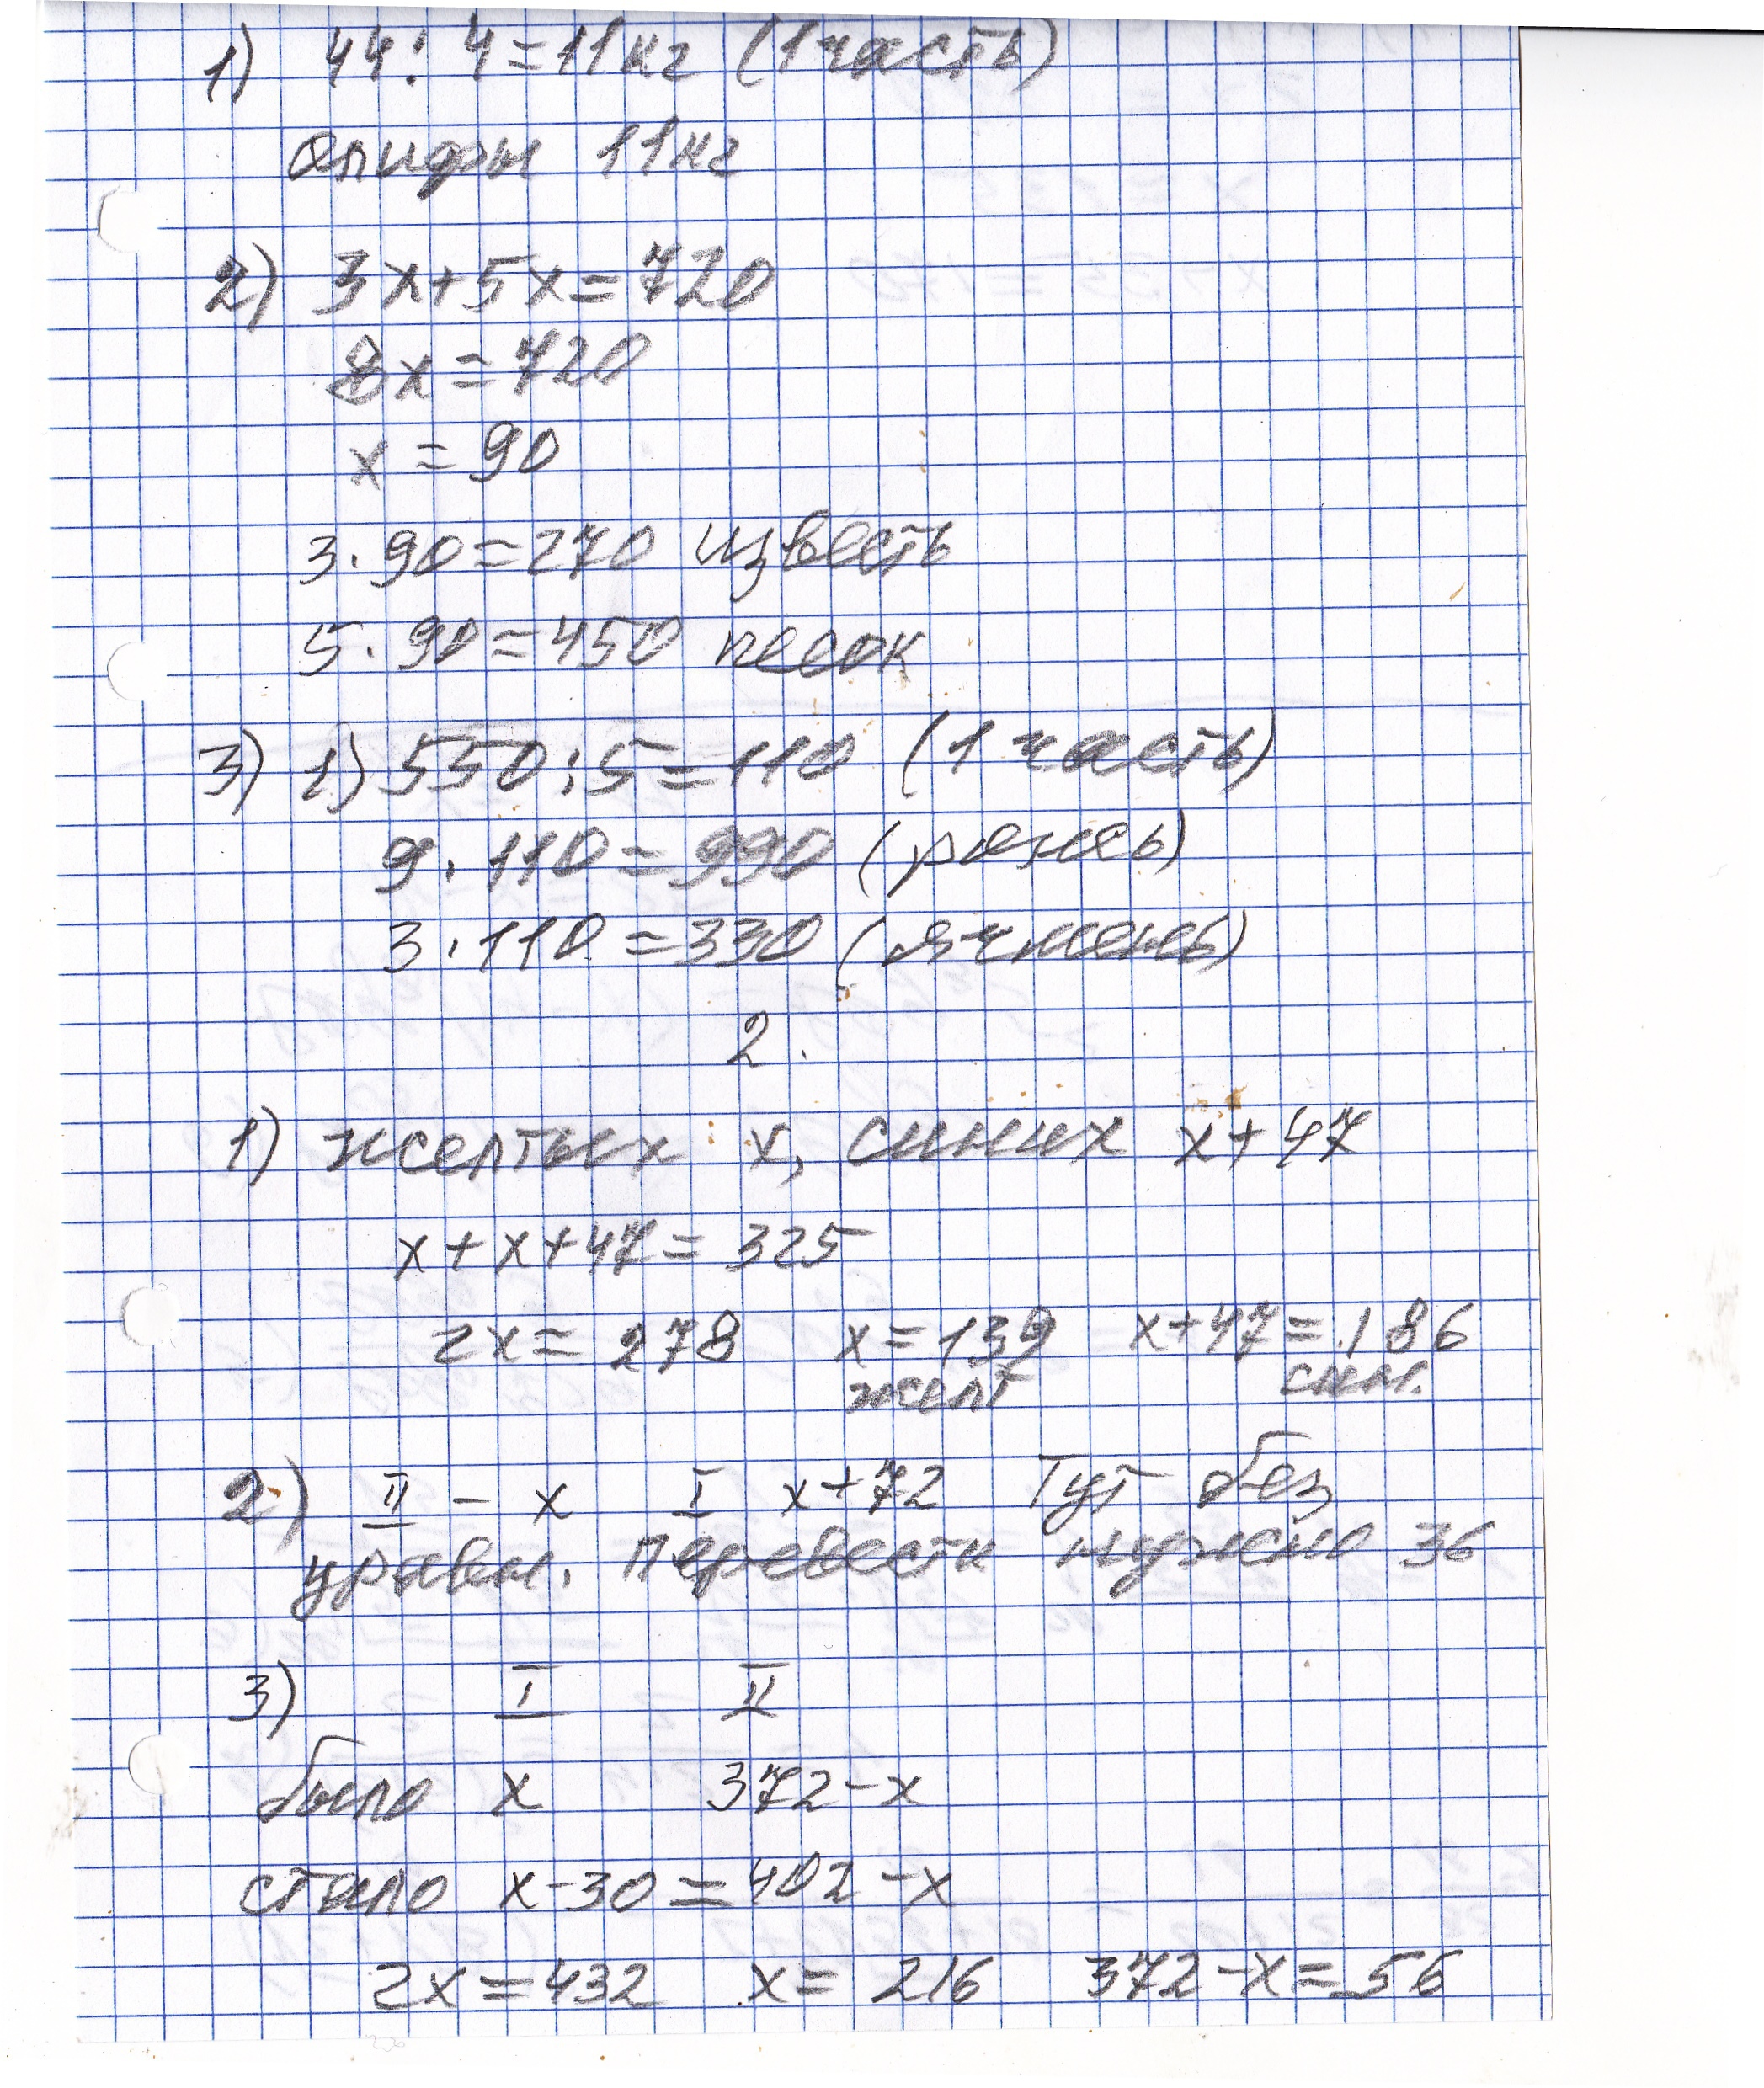 1) 44 : 4 = 11 кг (1 часть)
олифы 11 кг
2) 3x + 5x = 720
8x = 720
x = 90
3 · 90 = 270 известь
5 · 90 = 450 песок
3) 1) 550 : 5 = 110 (1 часть)
9 · 110 = 990 (рожь)
3 · 110 = 330 (ячмень)
2.
1) желтых x, синих x + 47
x + x + 47 = 325
2x = 278 x = 139 x + 47 = 186
желт син.
2) II – x I x + 72 Тут без
уравн. Перевести нужно 36
3) I II
было x 372 – x
стало x – 30 = 402 – x
2x = 432 x = 216 372 – x = 56